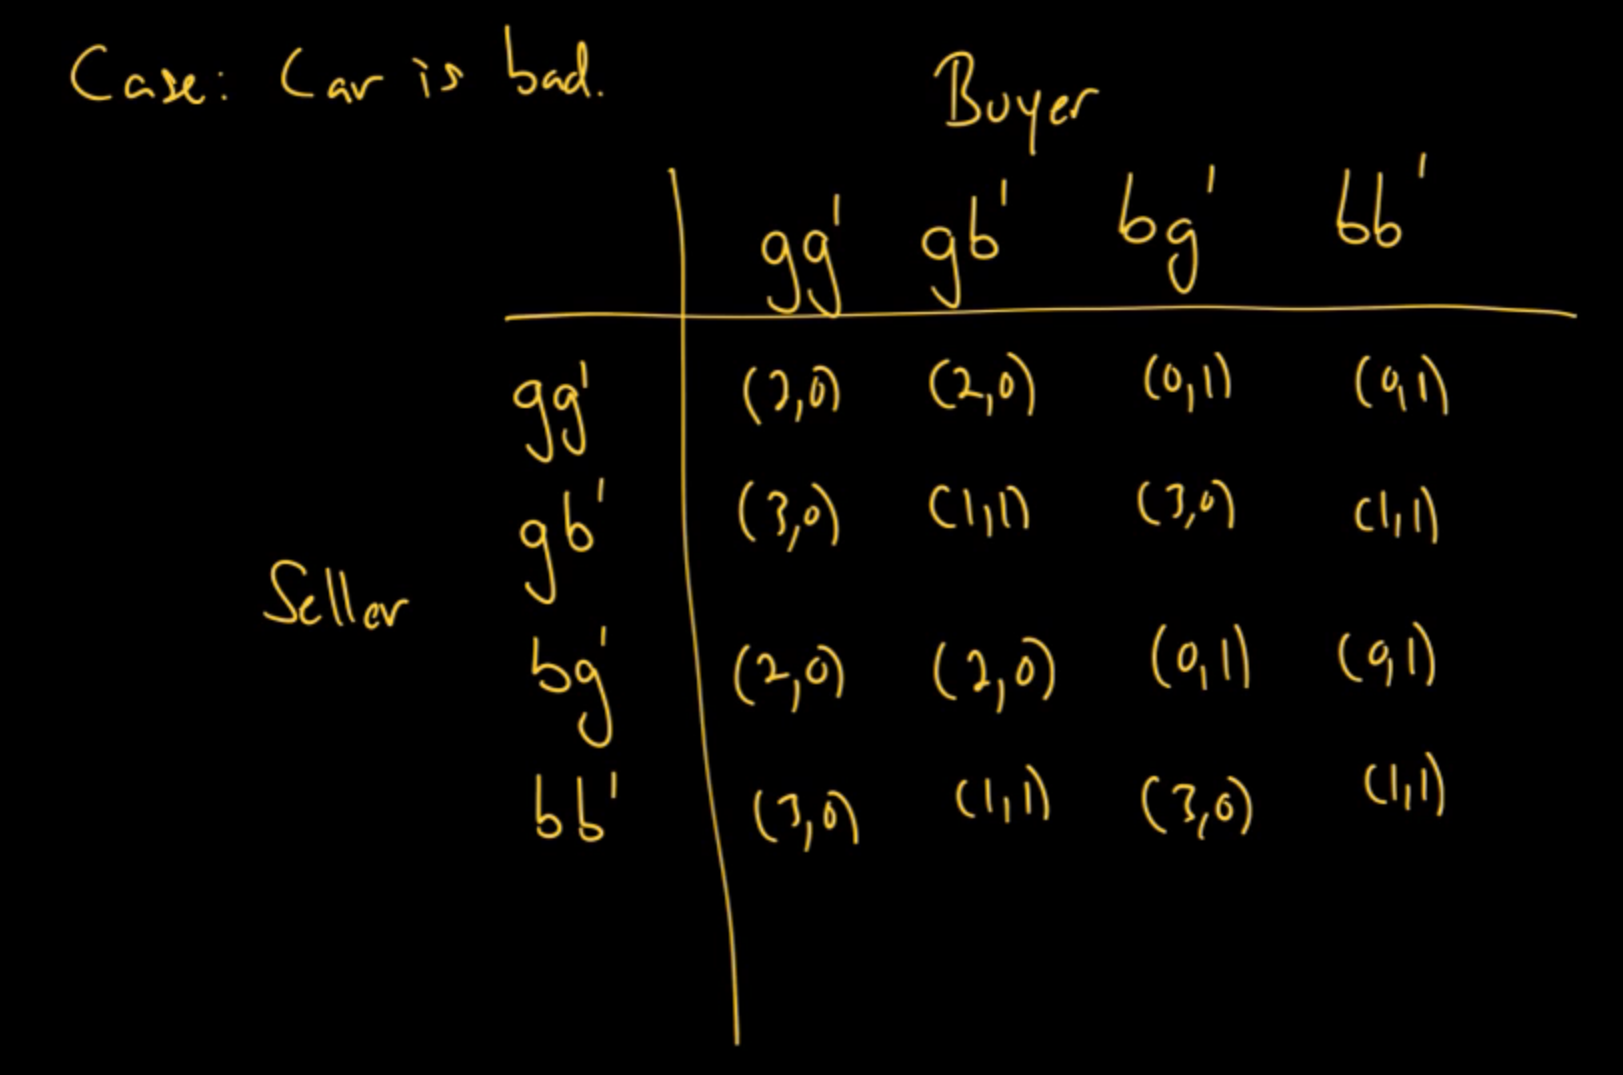 Case: Car is bad.
Buyer
gg' gb' bg' bb'
gg' (2,0) (2,0) (0,1) (0,1)
gb' (3,0) (1,1) (3,0) (1,1)
Seller
bg' (2,0) (2,0) (0,1) (0,1)
bb' (3,0) (1,1) (3,0) (1,1)